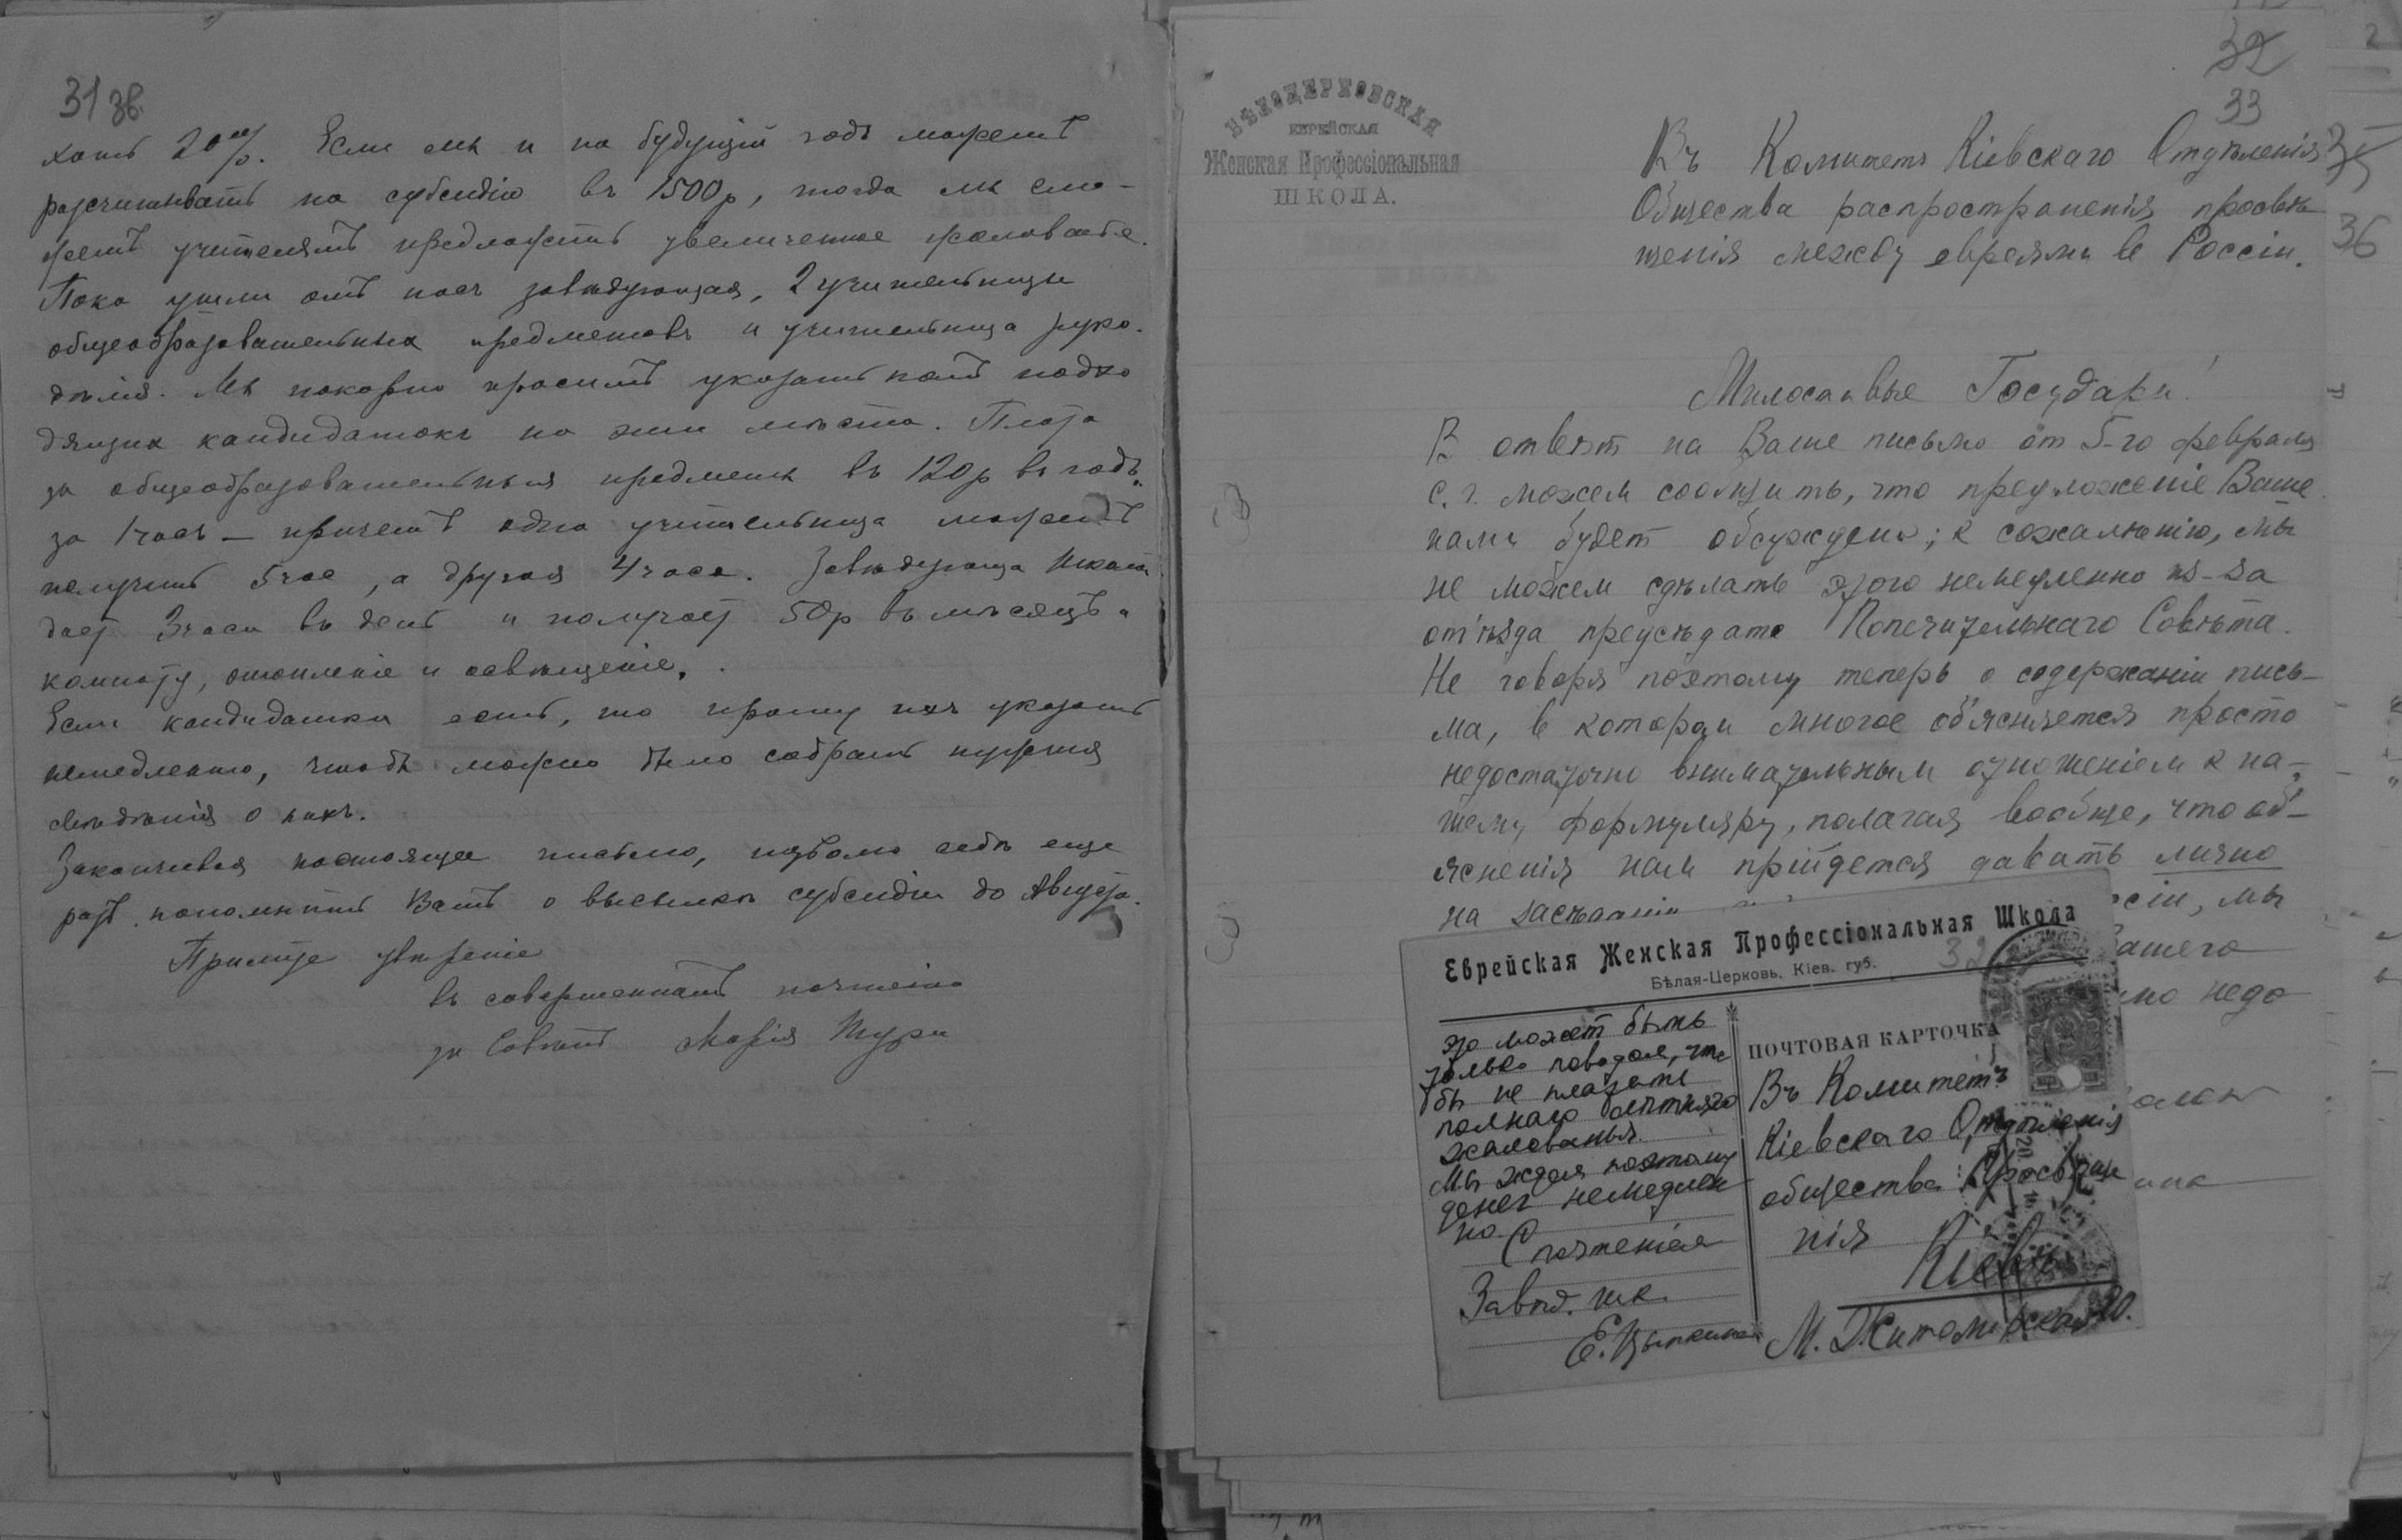 31 зв.
хотъ 20%. Если мы и на будущій годъ можемъ
разсчитывать на субсидію въ 1500р, тогда мы смо-
жемъ учителямъ предложить увеличенное жалованье.
Пока ушли отъ насъ завѣдующая, 2 учительницы
общеобразовательныхъ предметовъ и учительница руко-
дѣлія. Мы покорно просимъ указать намъ подхо
дящихъ кандидатокъ на эти мѣста. Плата
за общеобразовательныя предметы въ 120р въ годъ
за 1 часъ — причемъ одна учительница можетъ
получить 5 час, а другая 4 часа. Завѣдующая
даетъ 3 часа въ день и получаетъ 50р въ мѣсяцъ и
комнату, отопленіе и освѣщеніе.
Если кандидатки есть, то прошу ихъ указать
немедленно, чтобы можно было собрать нужныя
свѣдѣнія о нихъ.
Заканчивая настоящее письмо, позволю себѣ еще
разъ напомнить Вамъ о высылкѣ субсидіи до Августа.
Примите увѣреніе
въ совершенномъ почтеніи
за Совѣтъ Марія
32
33
35
36
БѢЛОЦЕРКОВСКАЯ
ЕВРЕЙСКАЯ
Женская Профессіональная
ШКОЛА.
Въ Комитетъ Кіевскаго Отдѣленія
Общества распространенія просвѣ
щенія между евреями в Россіи.
Милостивые Государи!
В отвѣт на Ваше письмо от 5-го февраля
с. г. можем сообщить, что предложеніе Ваше
нами будет обсуждено; к сожалѣнію, мы
не можем сдѣлать этого немедленно из-за
от'ѣзда предсѣдате Попечительнаго Совѣта.
Не говоря поэтому теперь о содержаніи пись-
ма, в котором многое об'ясняется просто
недостаточно внимательным отношеніем к на-
шему формуляру, полагая вообще, что об'-
ясненія нам прійдется давать лично
на засѣданіи ссіи, мы
ашего
но недо
Еврейская Женская Профессіональная Школа
Бѣлая-Церковь, Кіев. губ.
32
это может быть
только поводом, что
бы не платить
полнаго лѣтняго
жалованья.
Мы ждем поэтому
денег немедлен
но.
С почтеніем
Завѣд. шк.
Е. Цыпкина
ПОЧТОВАЯ КАРТОЧКА
Въ Комитетъ
Кіевскаго Отдѣленія
общества Просвѣще
нія
Кіевъ
М. Житомирская 20.